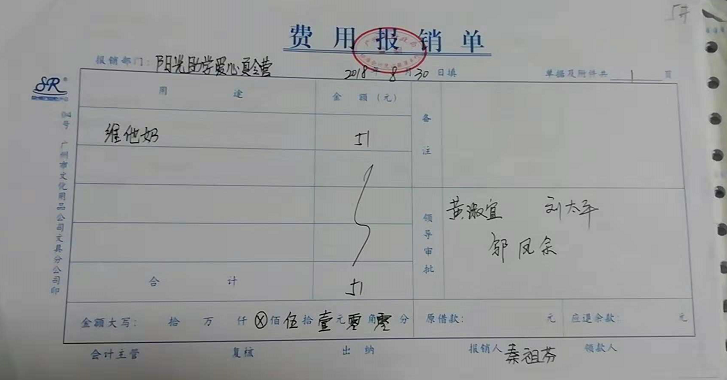 费用报销单
报销部门：阳光助学爱心夏令营 2018年8月30日填 单据及附件共 1 页
用途 金额（元）
维他奶 51
备注
领导审批
黄淑宜 刘太平
合计 51
金额大写： 拾 万 仟 ⊗佰伍拾壹元零角零分 原借款： 元 应退余款： 元
会计主管 复核 出纳 报销人 秦祖芬 领款人
SR
广州市文化用品公司文具分公司印